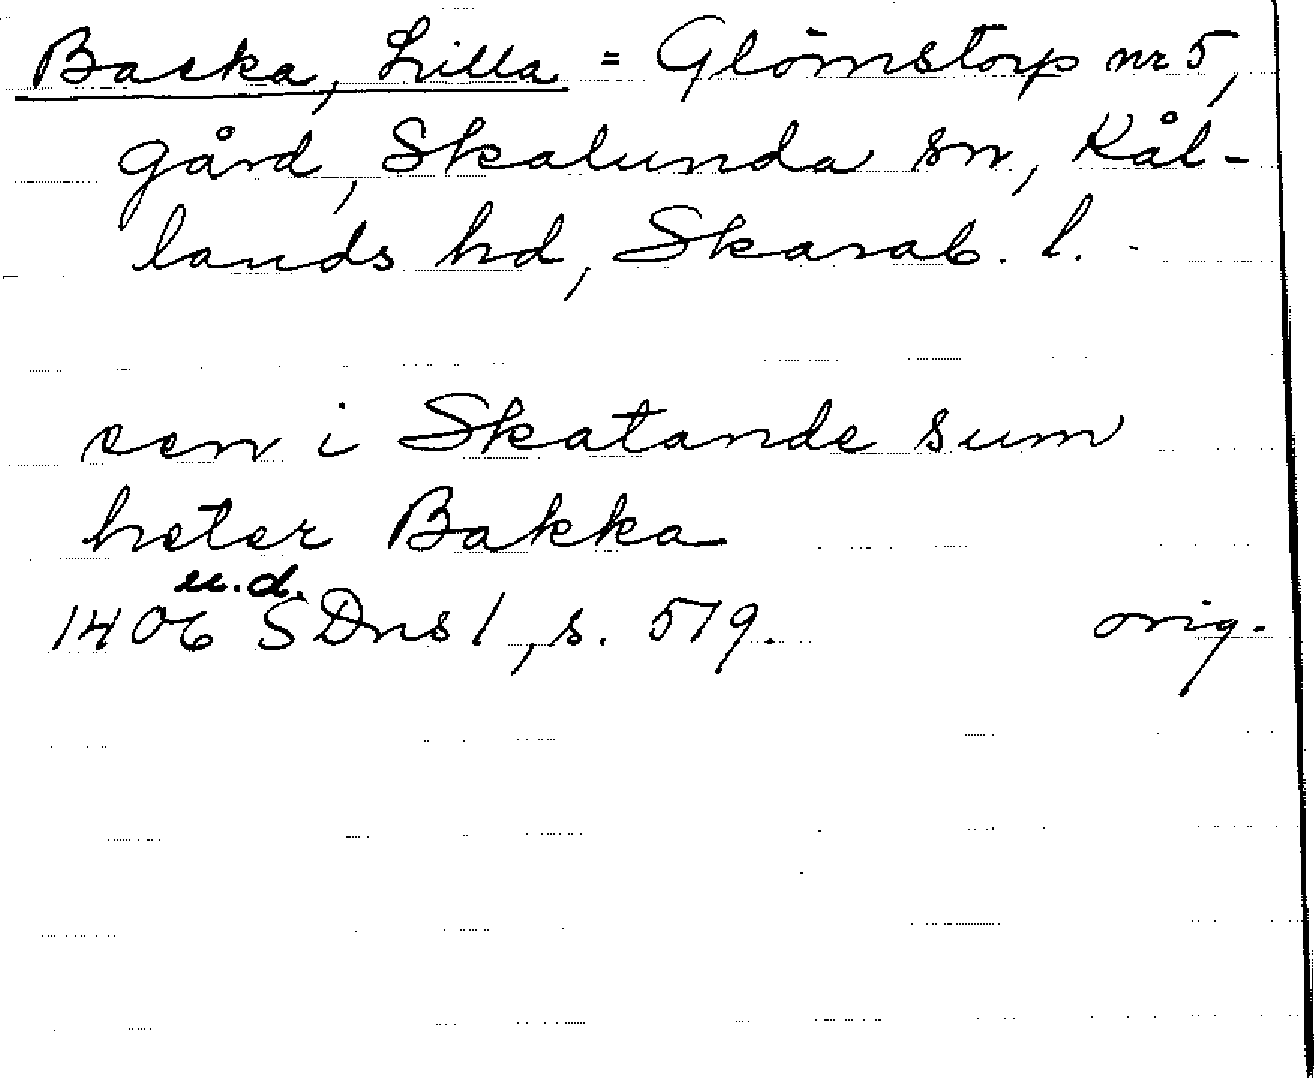 Backa, Lilla = Glömstorp nr 5,
gård, Skalunda sn, Kål-
lands hd, Skarab. l.
een i Skatande sum
heter Bakka
u.d.
1406 SDns 1, s. 519. orig.